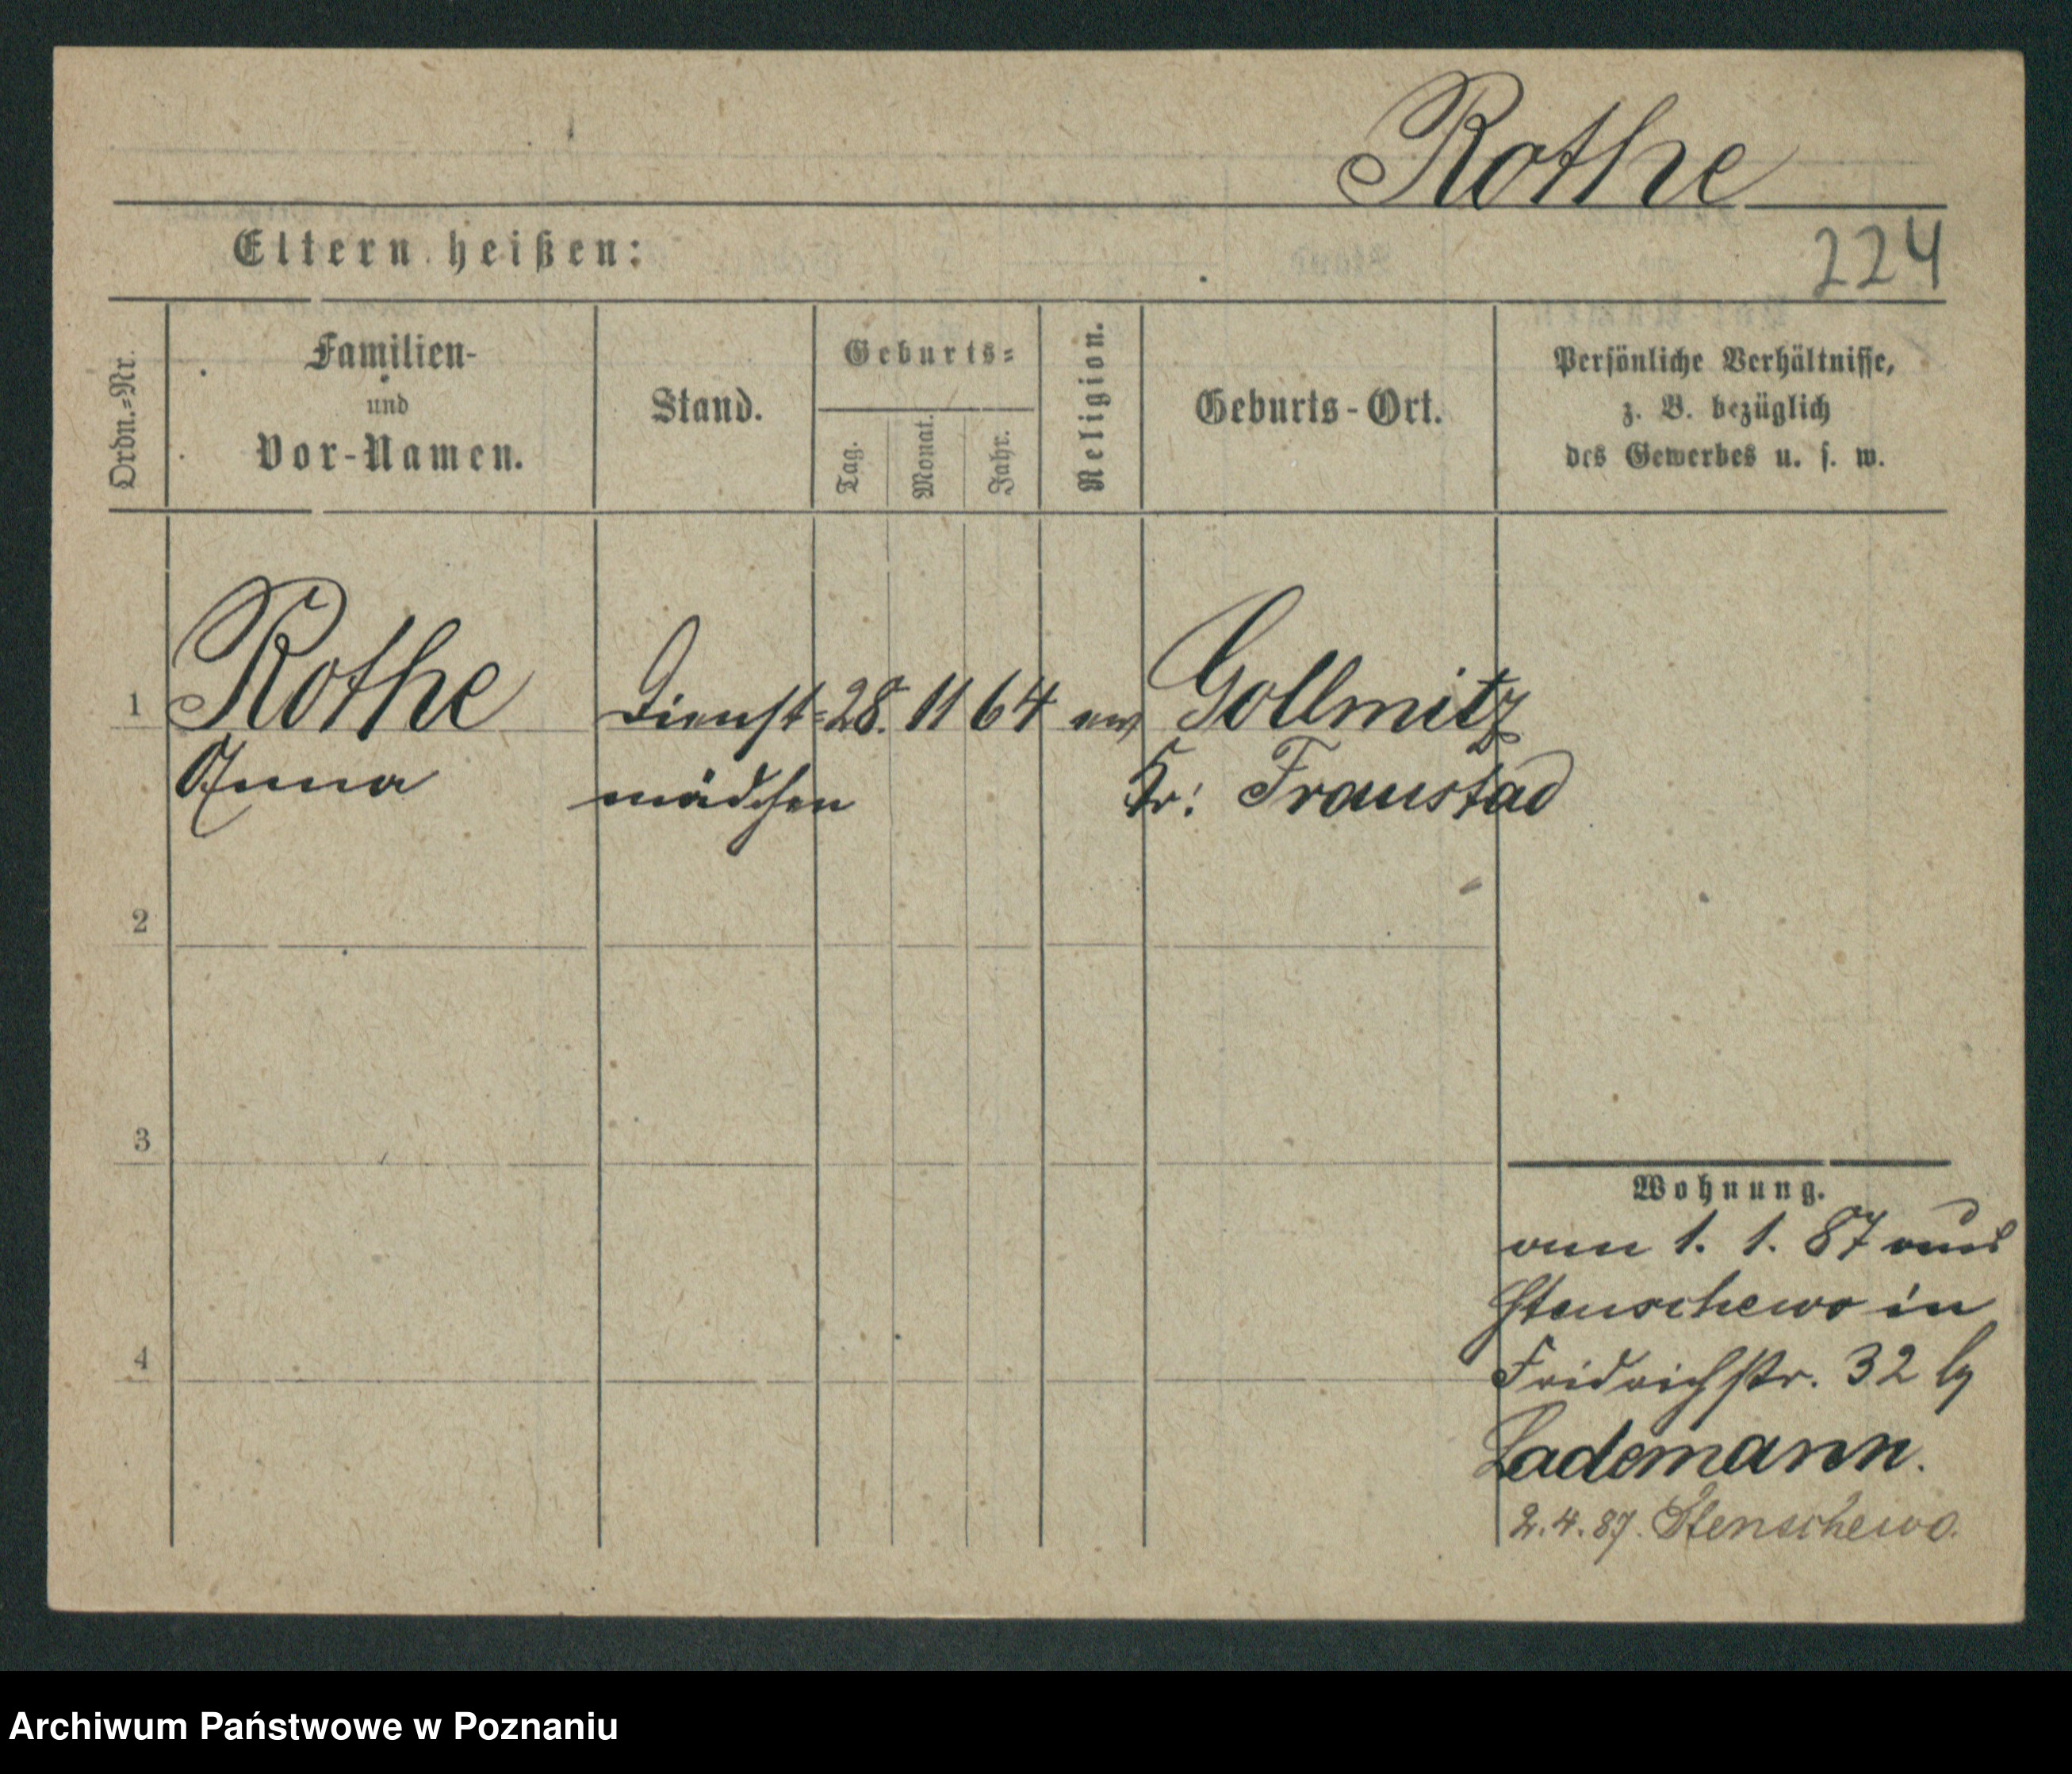 Rothe
224
Eltern heißen:
Ordn.=Nr.
Familien-
und
Vor-Namen.
Stand.
Geburts=
Tag.
Monat.
Jahr.
Religion.
Geburts-Ort.
Persönliche Verhältnisse,
z. B. bezüglich
des Gewerbes u. s. w.
1 Rothe Dienst= 28. 11 64 ev Gollmitz
Anna mädchen Kr: Fraustad
2
3
4
Wohnung.
vom 1. 1. 87 aus
Stenschewo in
Fridrichstr. 32 bei
Lademann.
2.4.87. Stenschewo.
Archiwum Państwowe w Poznaniu